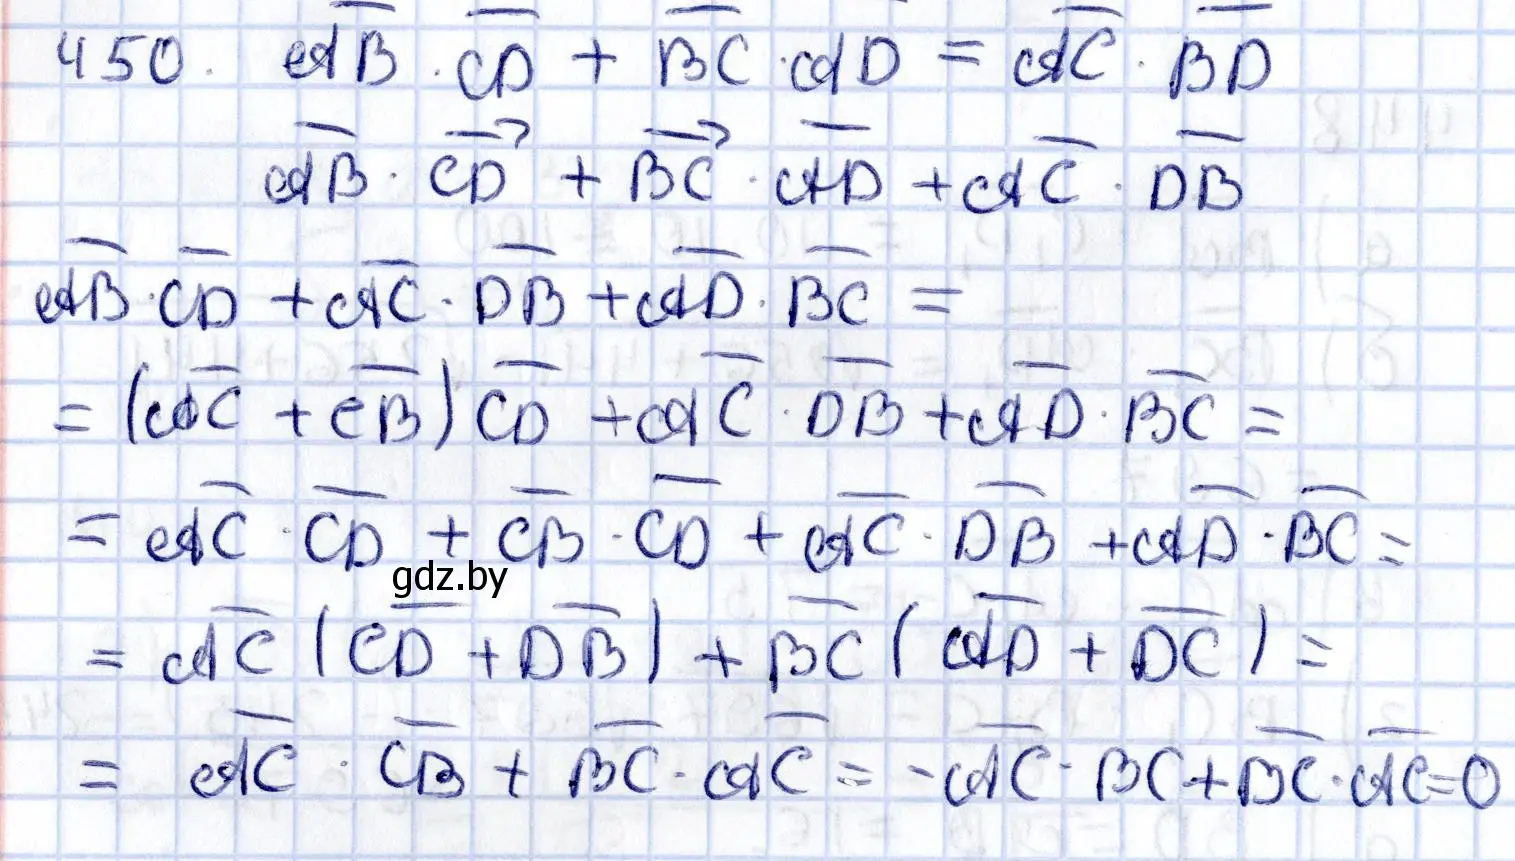 450. AB · CD + BC · AD = AC · BD
AB · CD + BC · AD + AC · DB
AB · CD + AC · DB + AD · BC =
= (AC + CB) CD + AC · DB + AD · BC =
= AC · CD + CB · CD + AC · DB + AD · BC =
gdz.by
= AC (CD + DB) + BC (AD + DC) =
= AC · CB + BC · AC = -AC · BC + BC · AC = 0